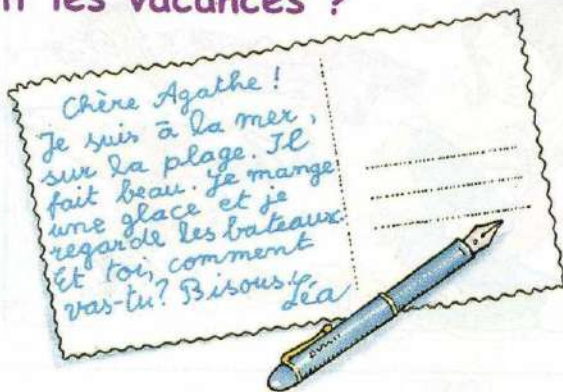 les vacances ?
Chère Agathe !
Je suis à la mer,
sur la plage. Il
fait beau. Je mange
une glace et je
regarde les bateaux.
Et toi, comment
vas-tu? Bisous.
Léa